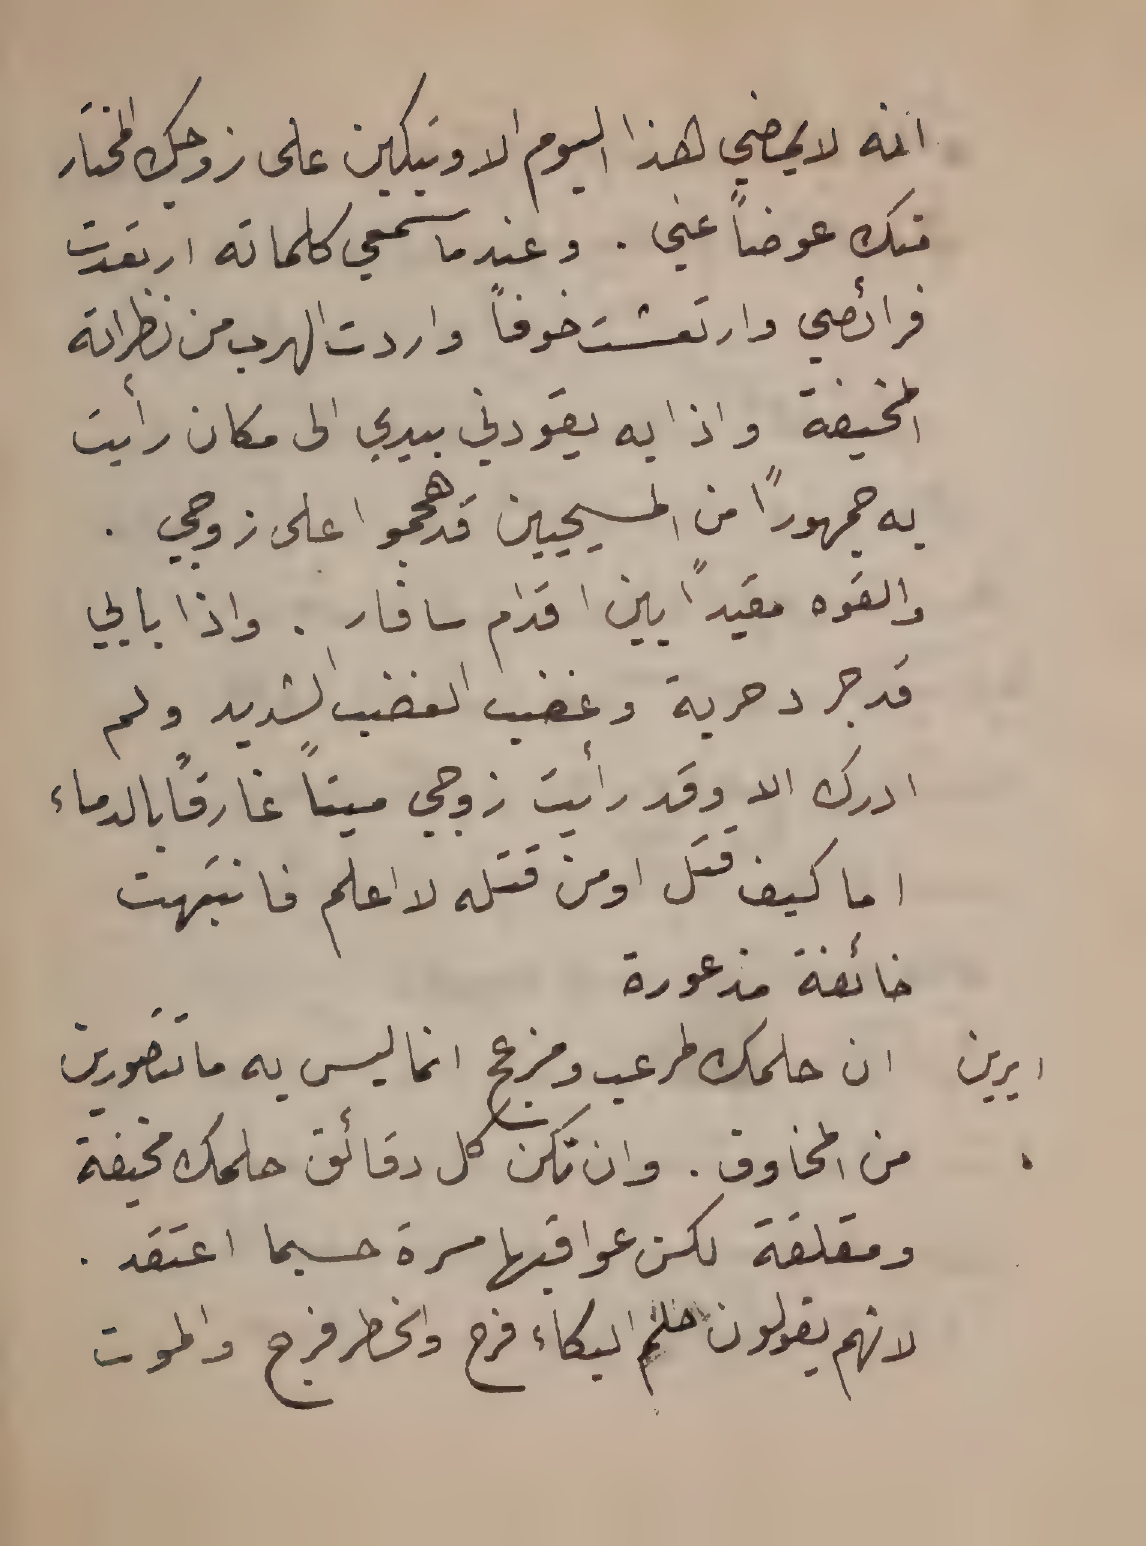 انه لا يمضي هذا اليوم الا وتبكين على زوجك المختار
منك عوضاً عني . وعندما سمعي كلماته ارتعدت
فرائصي وارتعشت خوفاً واردت الهرب من نظراته
المخيفة واذا به يقودني بيدي الى مكان رأيت
به جمهوراً من المسيحيين قد هجموا على زوجي .
والقوه مقيداً بين اقدام سافار . واذا بابي
قد جرد حربة وغضب الغضب الشديد ولم
ادرك الا وقد رأيت زوجي ميتاً غارقاً بالدماء
اما كيف قتل او من قتله لا اعلم فانتبهت
خائفة مذعورة
ايرين ان حلمك لمرعب ومزعج انما ليس به ما تتصورين
من المخاوف . وان تكن كل دقائق حلمك مخيفة
ومقلقة لكن عواقبها مسرة حسبما اعتقد .
لانهم يقولون حلم البكاء فرح والخطر فرج والموت